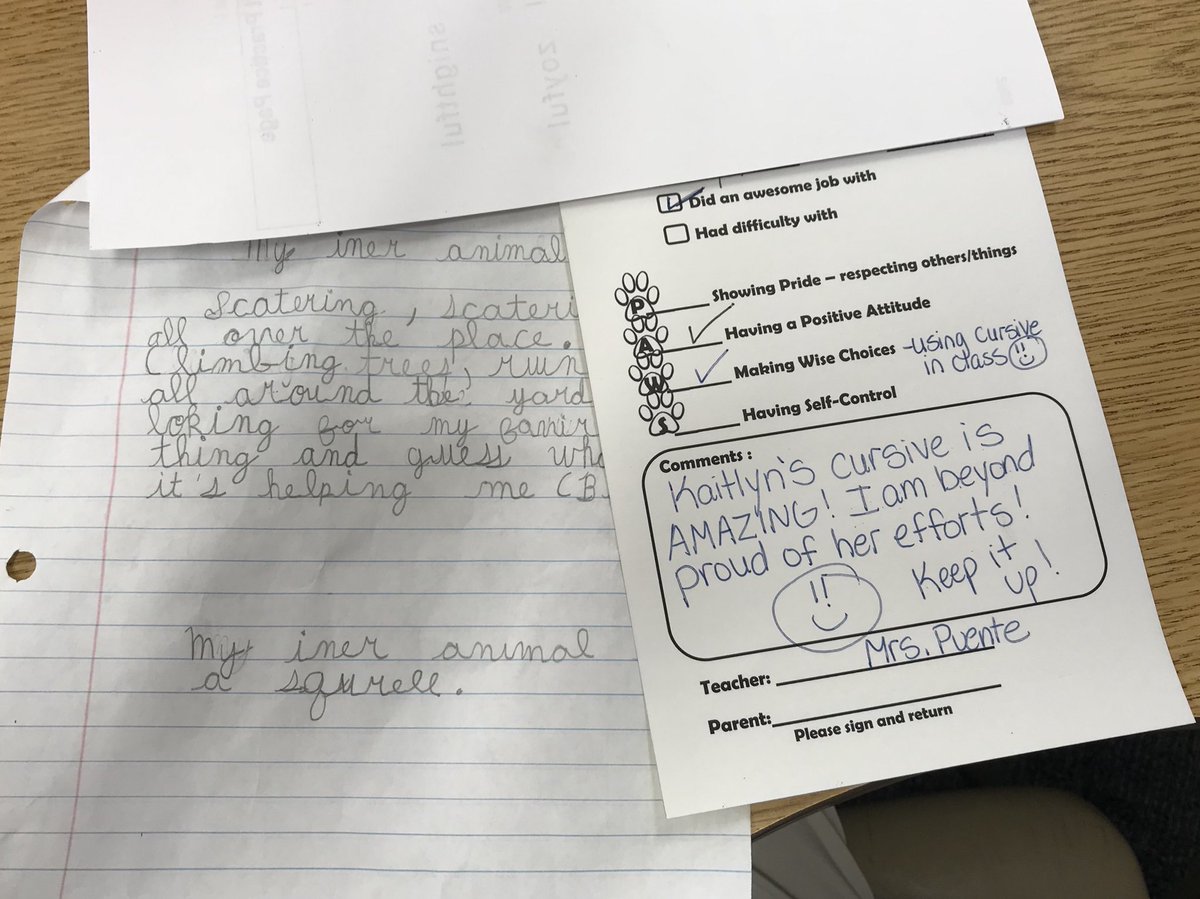 My iner animal
Scatering, scateri
all over the place.
Climbing trees, ruin
all around the yard
loking for my
thing and guess wh
it's helping me (B
My iner animal
a squrell.
Did an awesome job with
Had difficulty with
P Showing Pride – respecting others/things
A Having a Positive Attitude
W Making Wise Choices -using cursive
in class
S Having Self-Control
Comments :
Kaitlyn's cursive is
AMAZING! I am beyond
proud of her efforts!
Keep it
up!
Mrs. Puente
Teacher:
Parent:
Please sign and return